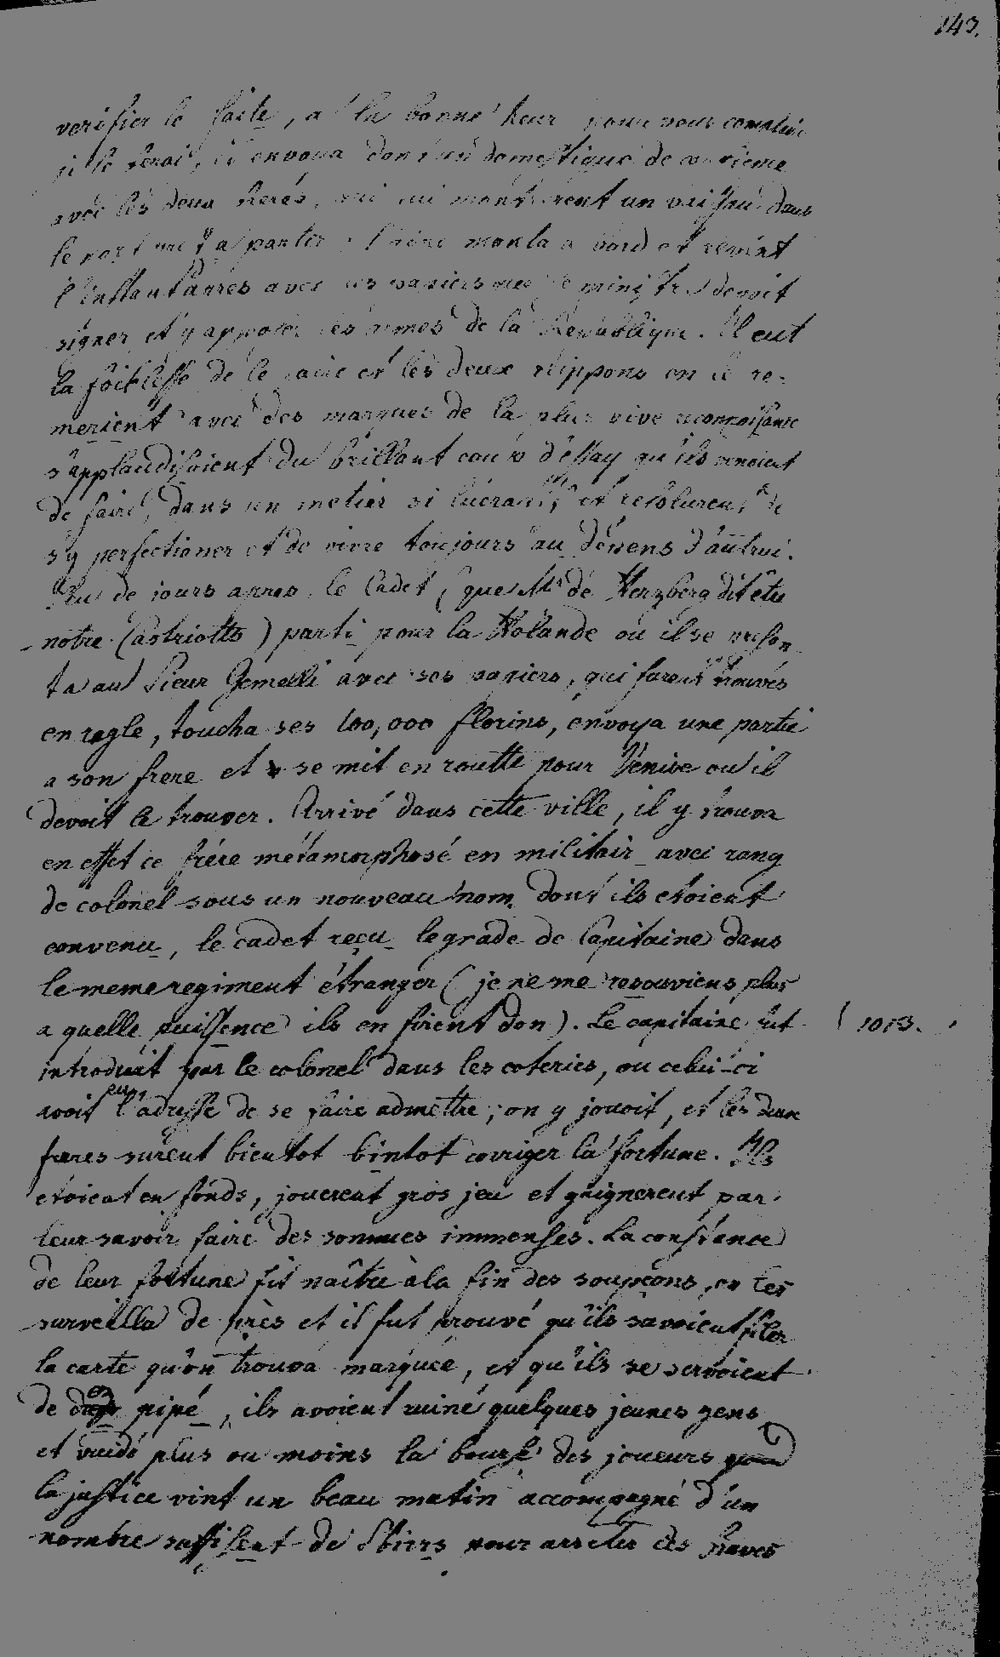 143.
verifier le faite, a la bonne heur pour vous complaire
je le ferai, il envoya donc un domestique de confience
avec les deux freres, qui lui montrerent un vaissau dans
le port pret a partir. L'ainé monta a bord et revint
l'instant d'apres avec les papiers que le ministre devoit
signer et y apposer les armes de la Republique. Il eut
la foiblesse de le faire et les deux frippons en le re-
merient avec des marques de la plus vive reconnoissance
s'applaudissoient du brillant coup d'essay qu'ils venoient
de faire, dans un metier si lucratif, et resolurent de
s'y perfectioner et de vivre toujours au depens d'autrui.
Peu de jours apres le Cadet (que Mr de Herzberg dit etre
notre Castriotto) parti pour la Holande ou il se presen
ta au Sieur Gemelli avec ses papiers, qui furent trouvés
en regle, toucha ses 100,000 florins, envoya une partie
a son frere et se mit en routte pour Venise ou il
devoit le trouver. Arrivé dans cette ville, il y trouva
en effet ce frére métamorphosé en militair avec rang
de colonel sous un nouveau nom, dont ils etoient
convenu, le cadet reçu le grade de Capitaine dans
le meme regiment étranger (je ne me resouviens plus
a quelle puissence ils en firent don). Le capitaine fut ( 1013.
introduit par le colonel dans les coteries, ou celui-ci
avoit eu l'adresse de se faire admettre; on y jouoit, et les deux
freres surent bientot bintot corriger la fortune. Ils
etoient en fonds, jouerent gros jeu et gaignerent par
leur savoir faire des sommes immenses. La constance
de leur fortune fit naître à la fin des soupçons, on les
surveilla de près et il fut prouvé qu'ils savoient filer
la carte qu'on trouva marquée, et qu'ils se servoient
de dez pipé, ils avoient ruiné quelques jeunes gens
et vuidé plus ou moins la bourse des joueurs quand
la justice vint un beau matin accompagné d'un
nombre suffisent de Sbirrs pour arreter ces braves